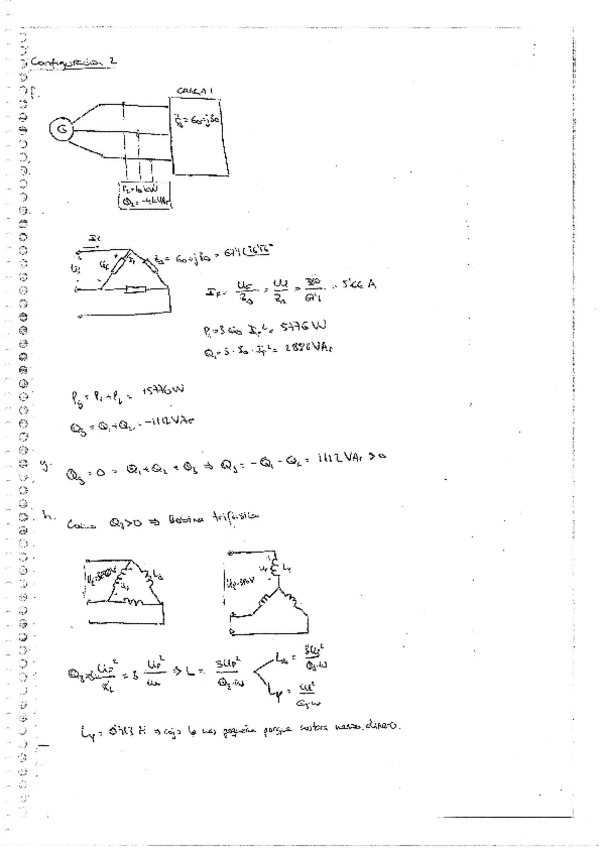 Configuración 2
f.
CARGA 1
Z₁ = 60+j30
G
P₂ = 10 kW
Q₂ = -4 kVAr
Z₁ = 60+j30 = 67'1 |26'56º
I_F = U_F/Z₁ = U_L/Z₁ = 380/67'1 = 5'66 A
P₁ = 3·60·I_F² = 5776 W
Q₁ = 3·30·I_F² = 2888 VAr
P_g = P₁ + P₂ = 15776 W
Q_g = Q₁ + Q₂ = -1112 VAr
g.
Q_g = 0 = Q₁ + Q₂ + Q₃ ⇒ Q₃ = -Q₁ - Q₂ = 1112 VAr > 0
h.
Como Q₃ > 0 ⇒ Bobina trifásica
U_F L_Y
U_L = 380V U_F L_Δ U_L = 380V
Q₃ = 3 U_F²/X_L = 3 U_F²/ωL ⇒ L = 3U_F²/Q₃·ω
L_Δ = 3U_L²/Q₃·ω
L_Y = U_L²/Q₃·ω
L_Y = 0'413 H ⇒ cojo la mas pequeña porque costara menos dinero.